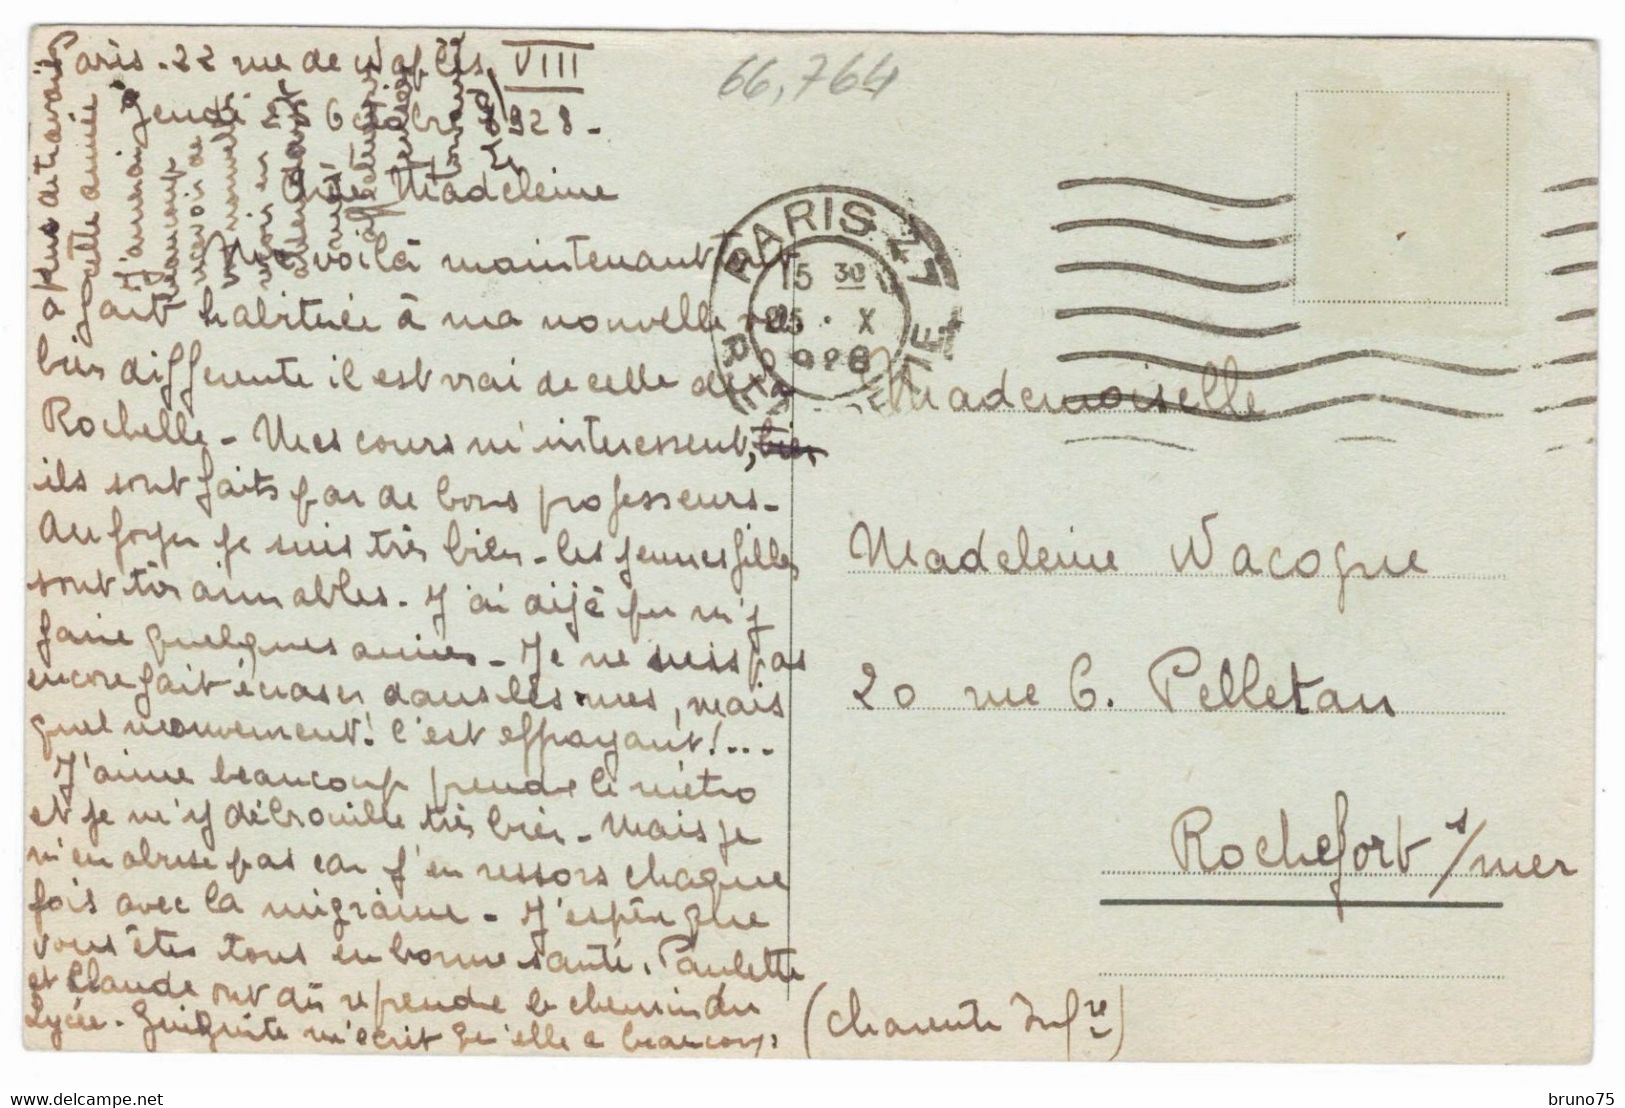 Paris. 22 rue de Naples VIII
Jeudi 25 Octobre 1928.
66,764
Chère Madeleine
Me voilà maintenant tout
fait habituée à ma nouvelle vie
bien différente il est vrai de celle de la
Rochelle - Mes cours m'interessent,
ils sont faits par de bons professeurs -
Au foyer je suis très bien - les jeunes filles
sont très aimables. J'ai déjà pu m'y
faire quelques amies - Je ne suis pas
encore fait écraser dans les rues, mais
quel mouvement! C'est effrayant!...
J'aime beaucoup prendre le métro
et je m'y débrouille très bien - Mais je
n'en abuse pas car j'en ressors chaque
fois avec la migraine - J'espère que
vous êtes tous en bonne santé. Paulette
et Claude ont dû reprendre le chemin du
Lycée - m'écrit qu'elle a beaucoup
plus de travail
cette année
J'aimerai
beaucoup
recevoir de
PARIS
15 30
25 · X
928
Mademoiselle
Madeleine Wacogne
20 rue C. Pelletan
Rochefort s/mer
(Charente Infre)
delcampe.com
bruno75